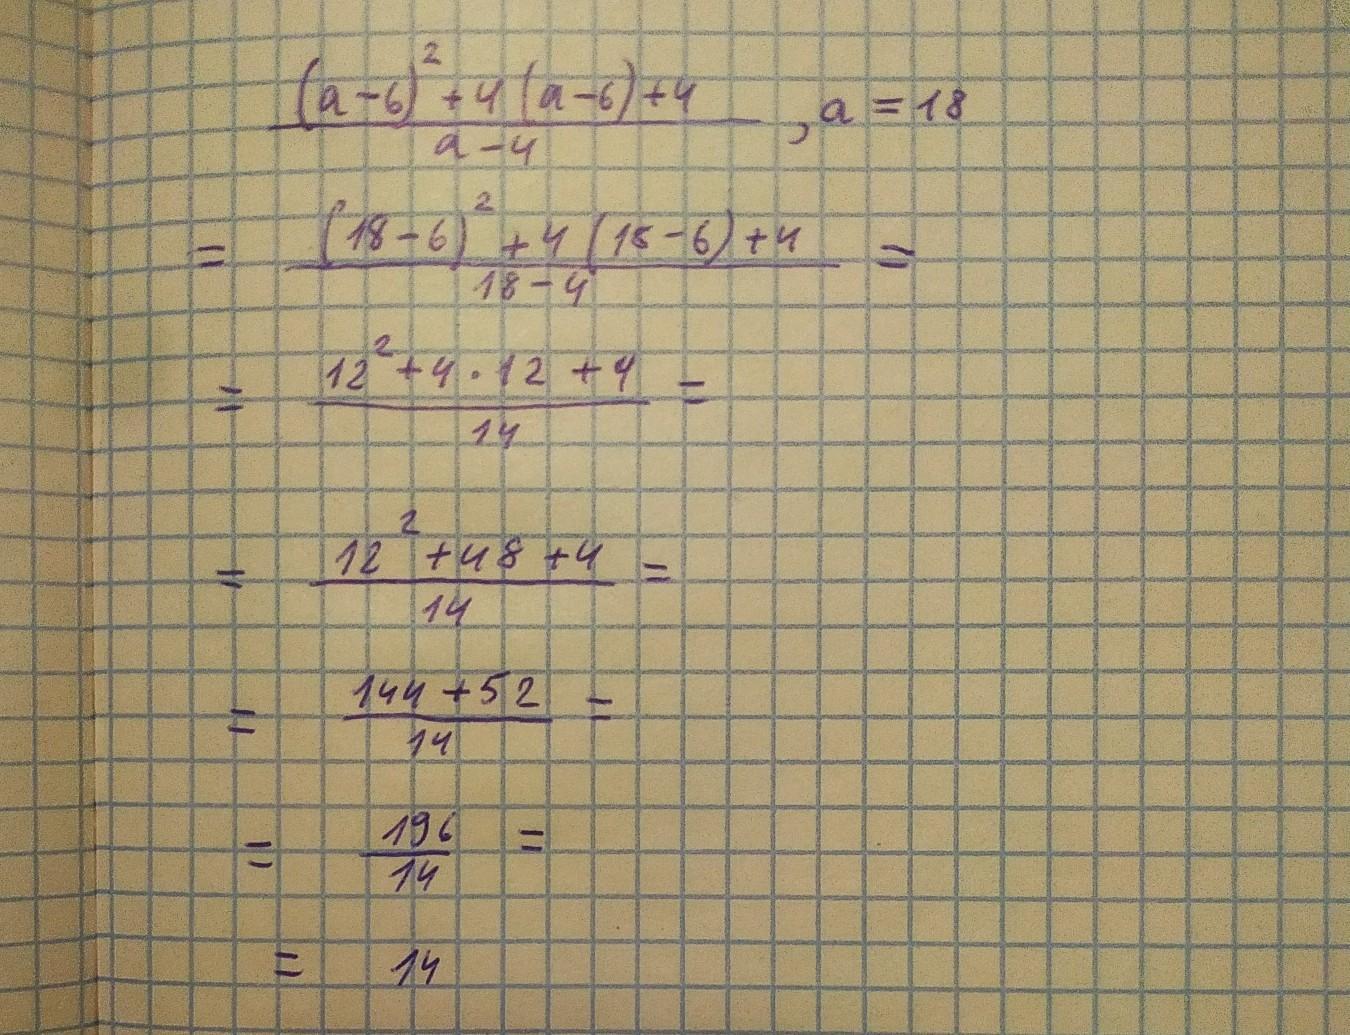 (a-6)² + 4(a-6)+4 / a-4 , a = 18
= (18-6)² + 4(18-6)+4 / 18-4 =
= 12² + 4 · 12 + 4 / 14 =
= 12² + 48 + 4 / 14 =
= 144 + 52 / 14 =
= 196 / 14 =
= 14